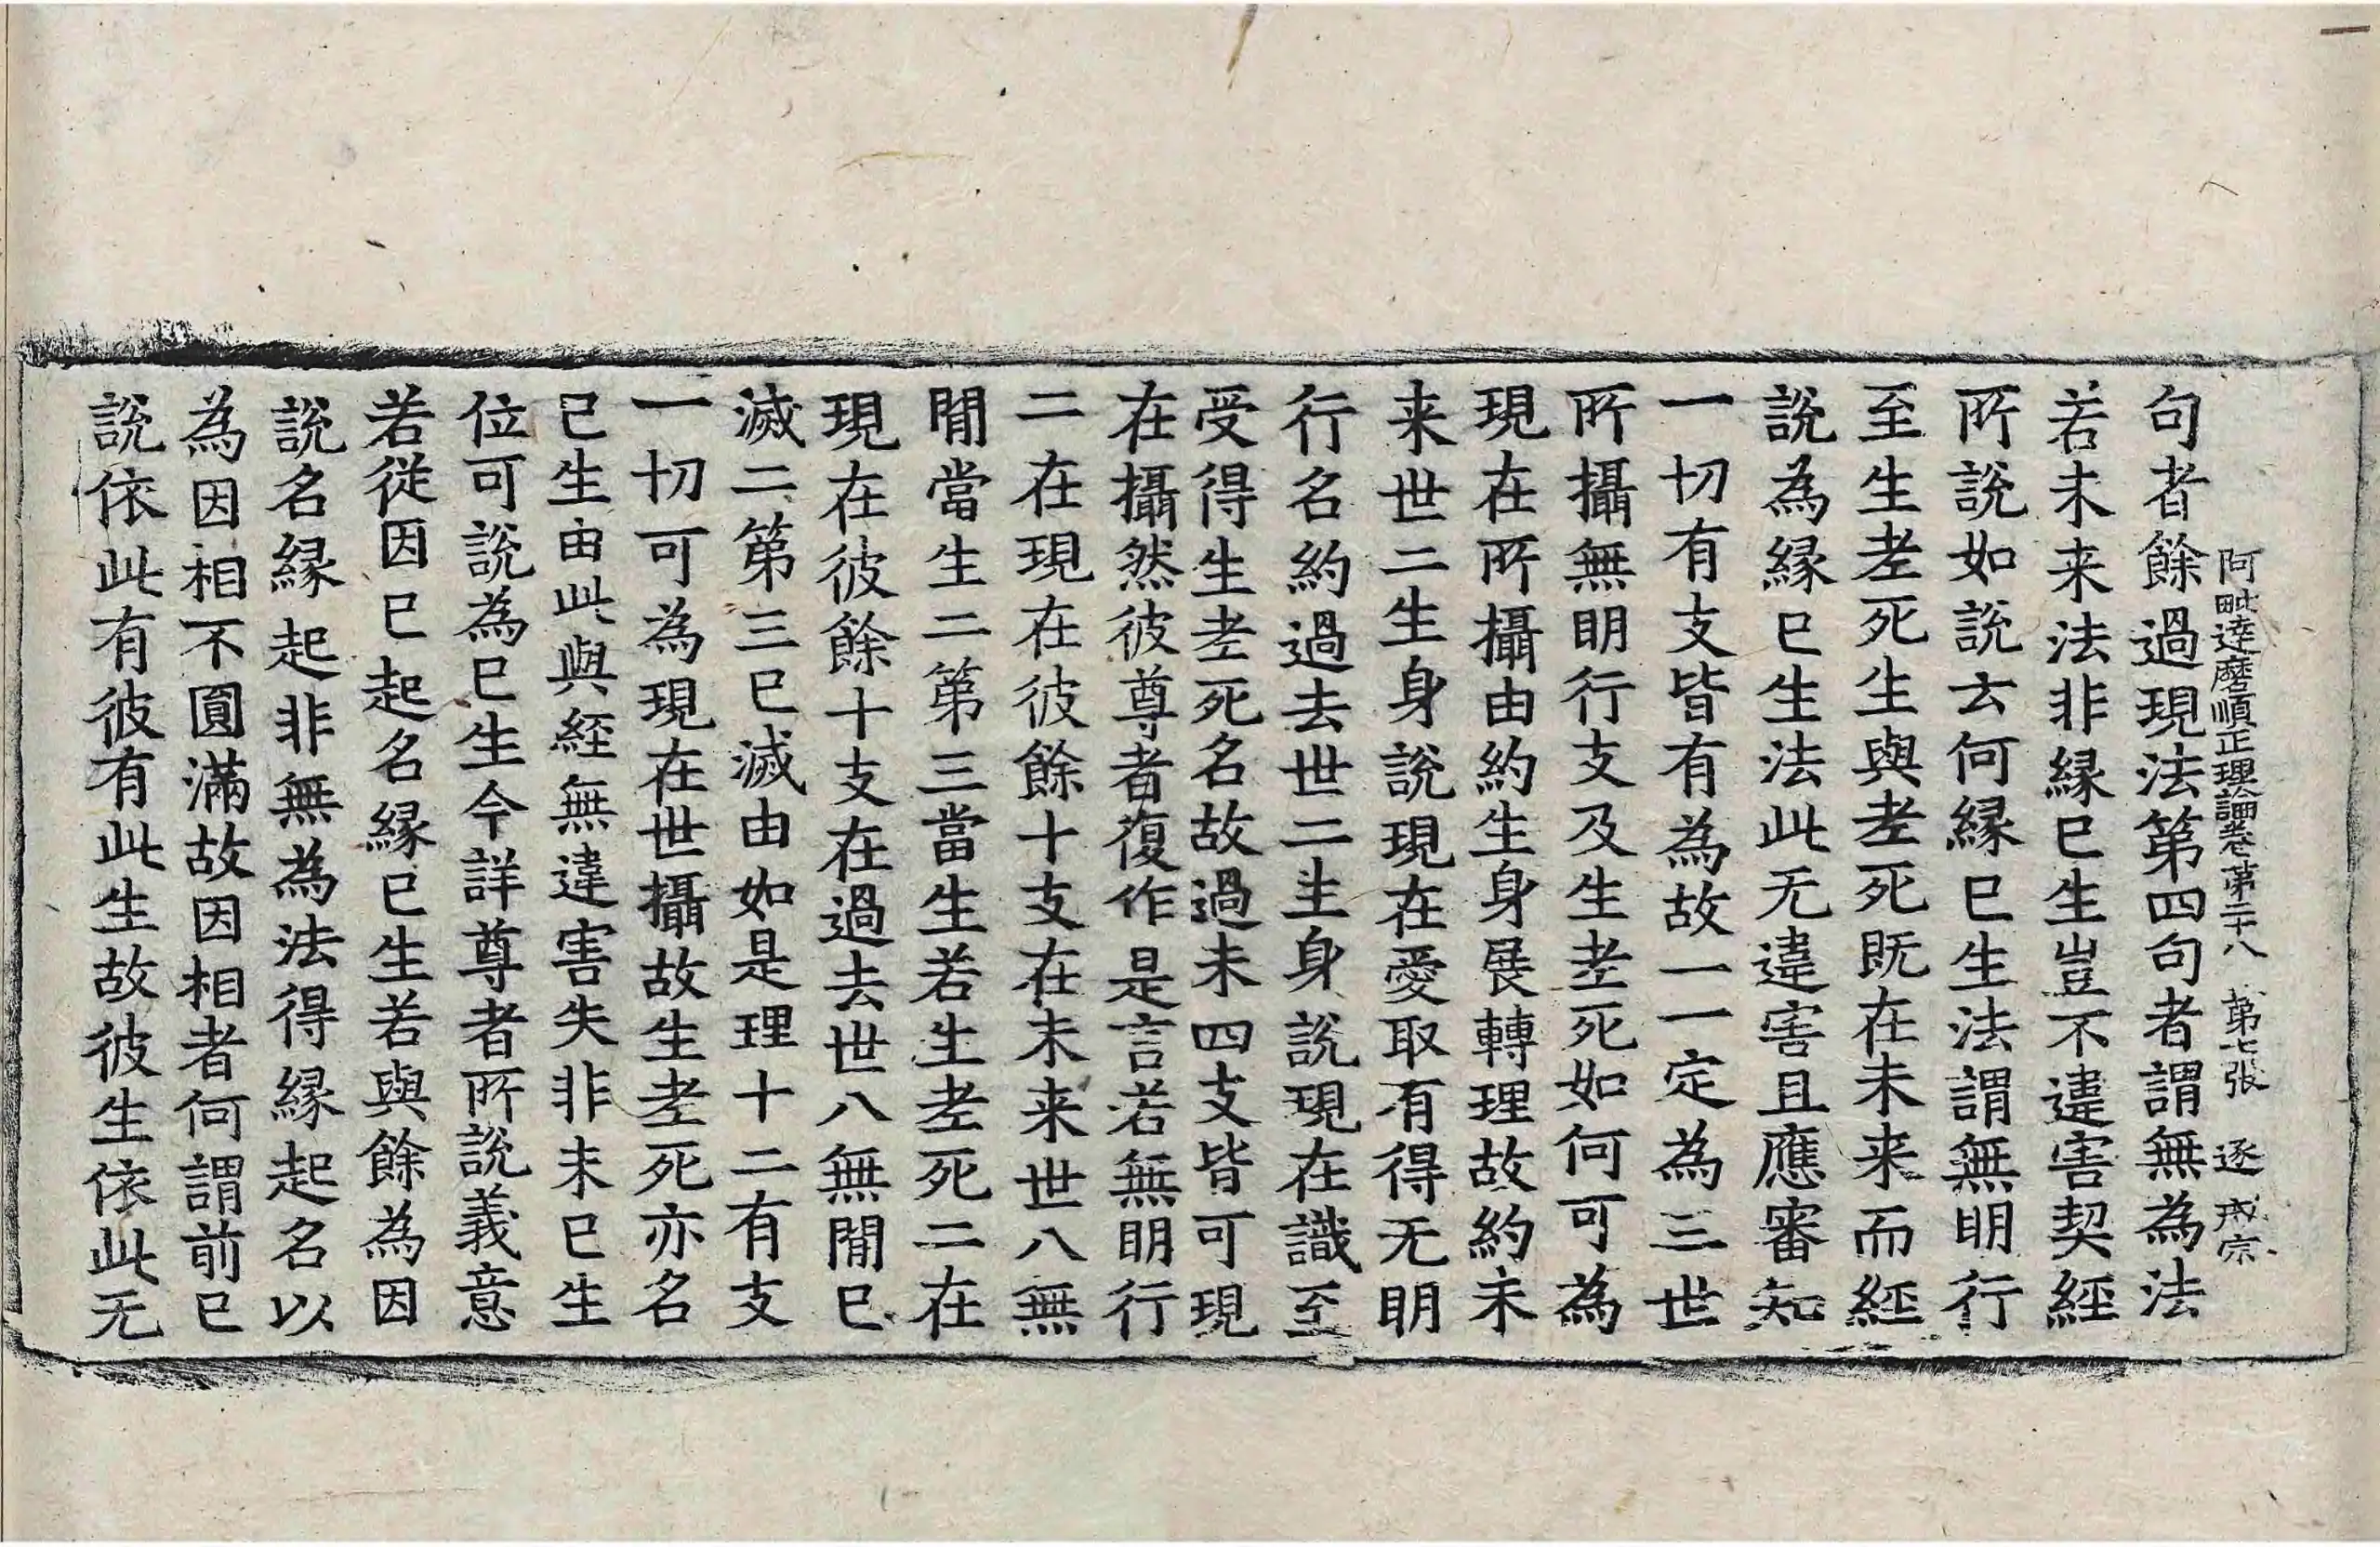 阿毗達磨順正理論卷第二十八 第七張 逐 戒宗
句者餘過現法第四句者謂無為法
若未来法非緣已生豈不違害契經
所說如說云何緣已生法謂無明行
至生老死生與老死既在未来而經
說為緣已生法此无違害且應審知
一切有支皆有為故一一定為三世
所攝無明行支及生老死如何可為
現在所攝由約生身展轉理故約未
来世二生身說現在愛取有得无明
行名約過去世二生身說現在識至
受得生老死名故過未四支皆可現
在攝然彼尊者復作是言若無明行
二在現在彼餘十支在未来世八無
閒當生二第三當生若生老死二在
現在彼餘十支在過去世八無閒已
滅二第三已滅由如是理十二有支
一切可為現在世攝故生老死亦名
已生由此與經無違害失非未已生
位可說為已生今詳尊者所說義意
若從因已起名緣已生若與餘為因
說名緣起非無為法得緣起名以
為因相不圓滿故因相者何謂前已
說依此有彼有此生故彼生依此无